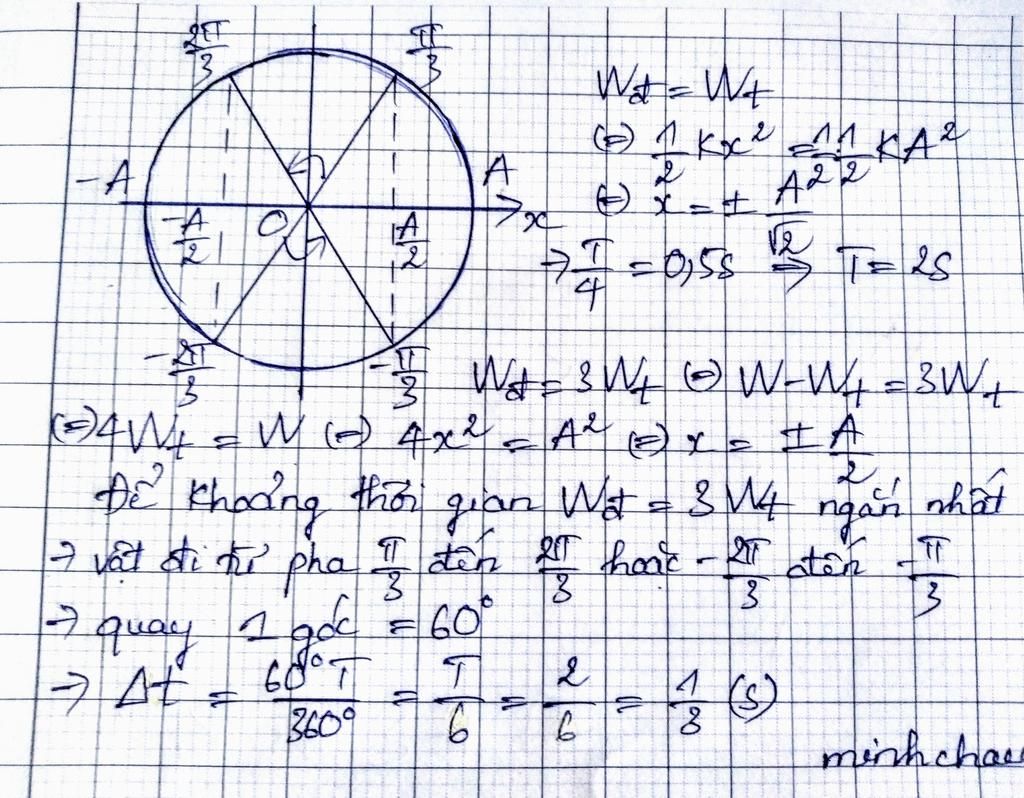 2π/3 π/3
-A A
-A/2 O A/2 x
-2π/3 -π/3
Wđ = Wt
(=) 1/2 Kx² = 1/2.1/2 KA²
(=) x = ± A/√2
→ T/4 = 0,5s => T = 2s
Wđ = 3Wt (=) W-Wt = 3Wt
(=) 4Wt = W (=) 4x² = A² (=) x = ± A/2
Để khoảng thời gian Wđ = 3Wt ngắn nhất
→ vật đi từ pha π/3 đến 2π/3 hoặc -2π/3 đến -π/3
→ quay 1 góc = 60°
→ Δt = 60°T/360° = T/6 = 2/6 = 1/3 (s)
minhchau